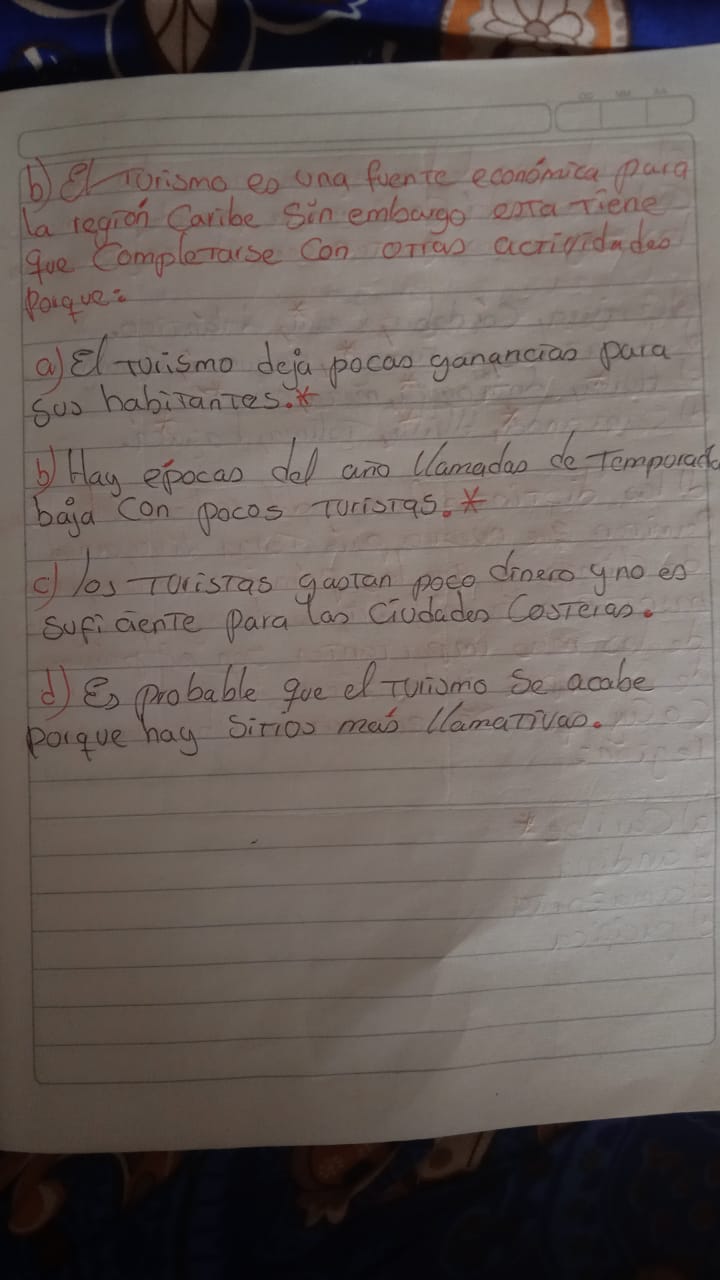 b) El Turismo es una fuente económica para
la región Caribe Sin embargo esta tiene
que Completarse Con otras actividades
Porque:
a) El turismo deja pocas ganancias para
sus habitantes.*
b) Hay épocas del año llamadas de temporada
baja Con pocos turistas.*
c) los turistas gastan poco dinero y no es
suficiente para las Ciudades Costeras.
d) Es probable que el turismo se acabe
porque hay Sitios más llamativas.